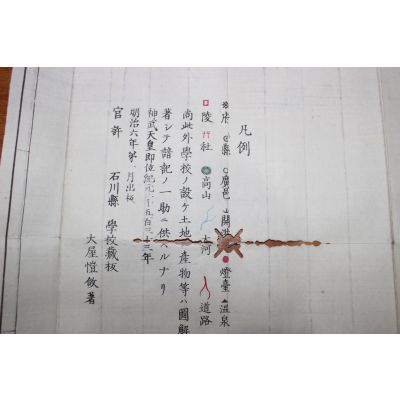 凡例
府 縣 廣邑 開港 燈臺 温泉
陵 社 高山 大河 道路
尚此外學校ノ設ケ土地ノ産物等ハ圖解
著シテ諳記ノ一助ニ供ヘルナリ
神武天皇即位紀元二千五百三十三年
明治六年第一月出板
官許 石川縣 學校藏板
大屋愷𣫍著